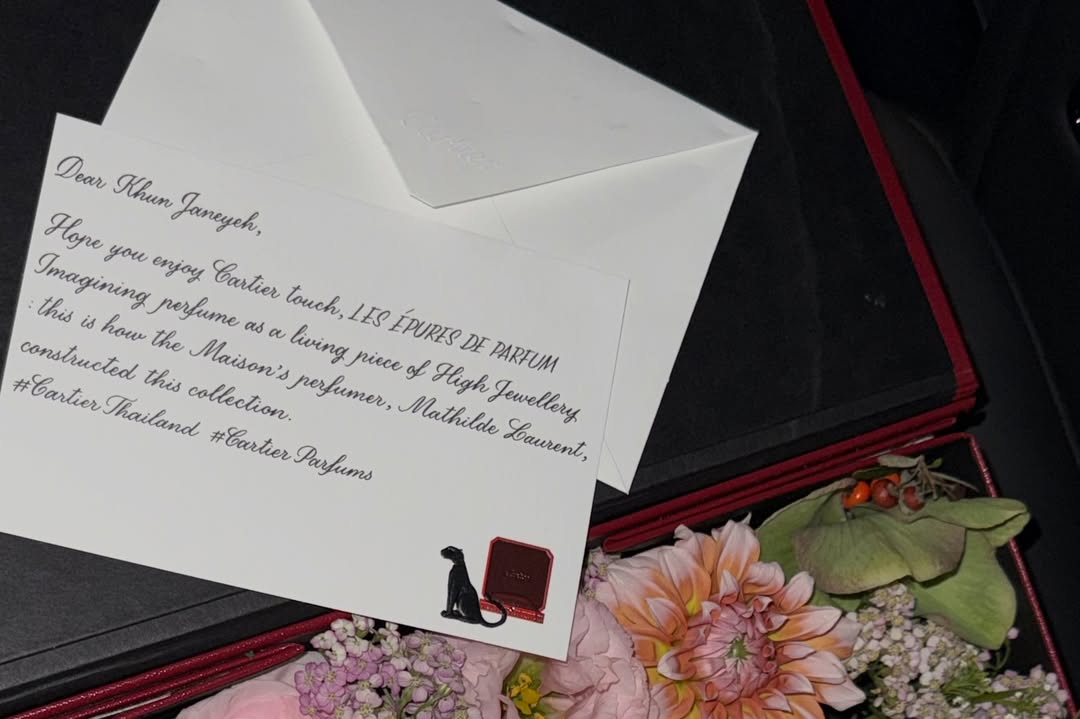 Cartier
Dear Khun Janeyeh,
Hope you enjoy Cartier touch, LES ÉPURES DE PARFUM
Imagining perfume as a living piece of High Jewellery
: this is how the Maison's perfumer, Mathilde Laurent,
constructed this collection.
#CartierThailand #CartierParfums
Cartier